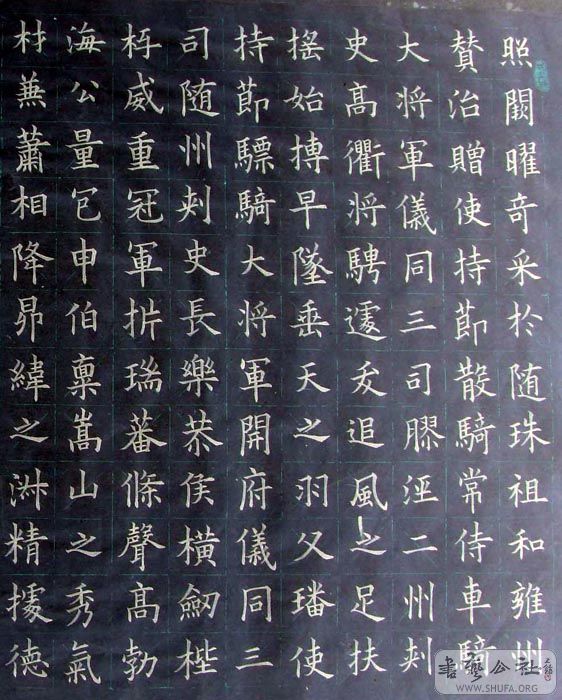 照闕曜奇采於随珠祖和雍州
賛治贈使持節散騎常侍車騎
大将軍儀同三司膠涇二州刾
史髙衢将騁遽夭追風之足扶
揺始搏早墜垂天之羽父璠使
持節驃騎大将軍開府儀同三
司随州刾史長樂恭侯橫劒梐
枑威重冠軍析瑞蕃條聲髙勃
海公量包申伯稟嵩山之秀氣
材兼蕭相降昴緯之淑精據德
書藝公社
WWW.SHUFA.ORG